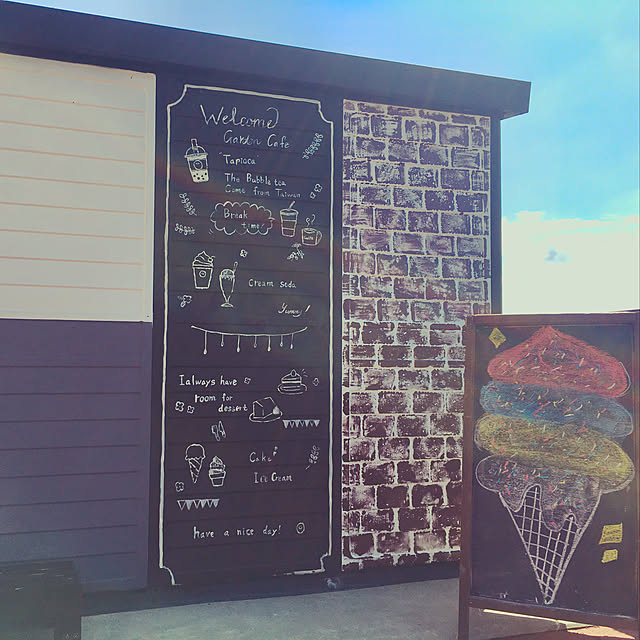 Welcome
Garden Cafe
"Tapioca"
The Bubble tea
Come from Taiwan
Break
time
Cream soda
Yummy!
I always have
room for
dessert
Cake
Ice Cream
have a nice day!